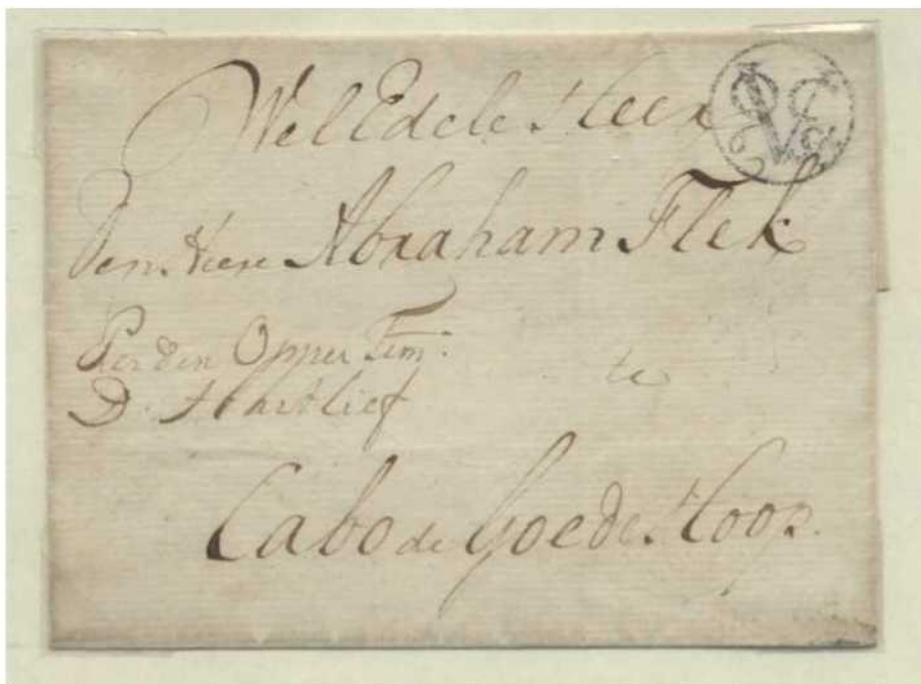 Wel Edele Heer
VOC
Den Heere Abraham Flek
Per den Opper Tim:
D. Hartlief
te
Cabo de Goede Hoop.